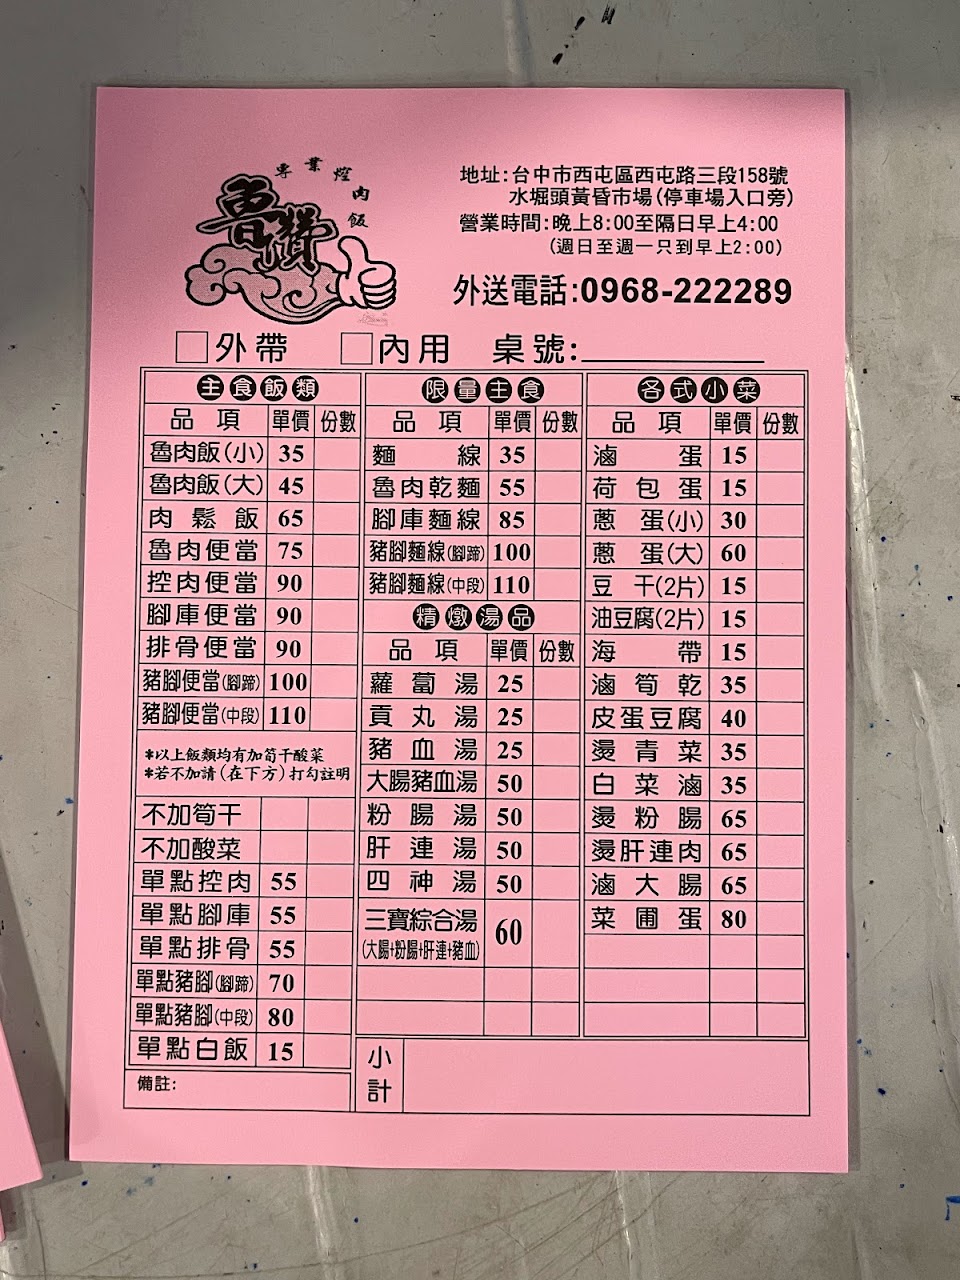 專業焢肉飯
魯讚
地址:台中市西屯區西屯路三段158號
水堀頭黃昏市場(停車場入口旁)
營業時間:晚上8:00至隔日早上4:00
(週日至週一只到早上2:00)
外送電話:0968-222289
外帶 內用 桌號:
主食飯類
品項 單價 份數
魯肉飯(小) 35
魯肉飯(大) 45
肉鬆飯 65
魯肉便當 75
控肉便當 90
腳庫便當 90
排骨便當 90
豬腳便當(腳蹄) 100
豬腳便當(中段) 110
*以上飯類均有加筍干酸菜
*若不加請(在下方)打勾註明
不加筍干
不加酸菜
單點控肉 55
單點腳庫 55
單點排骨 55
單點豬腳(腳蹄) 70
單點豬腳(中段) 80
單點白飯 15
備註:
限量主食
品項 單價 份數
麵線 35
魯肉乾麵 55
腳庫麵線 85
豬腳麵線(腳蹄) 100
豬腳麵線(中段) 110
精燉湯品
品項 單價 份數
蘿蔔湯 25
貢丸湯 25
豬血湯 25
大腸豬血湯 50
粉腸湯 50
肝連湯 50
四神湯 50
三寶綜合湯 60
(大腸+粉腸+肝連+豬血)
各式小菜
品項 單價 份數
滷蛋 15
荷包蛋 15
蔥蛋(小) 30
蔥蛋(大) 60
豆干(2片) 15
油豆腐(2片) 15
海帶 15
滷筍乾 35
皮蛋豆腐 40
燙青菜 35
白菜滷 35
燙粉腸 65
燙肝連肉 65
滷大腸 65
菜圃蛋 80
小計